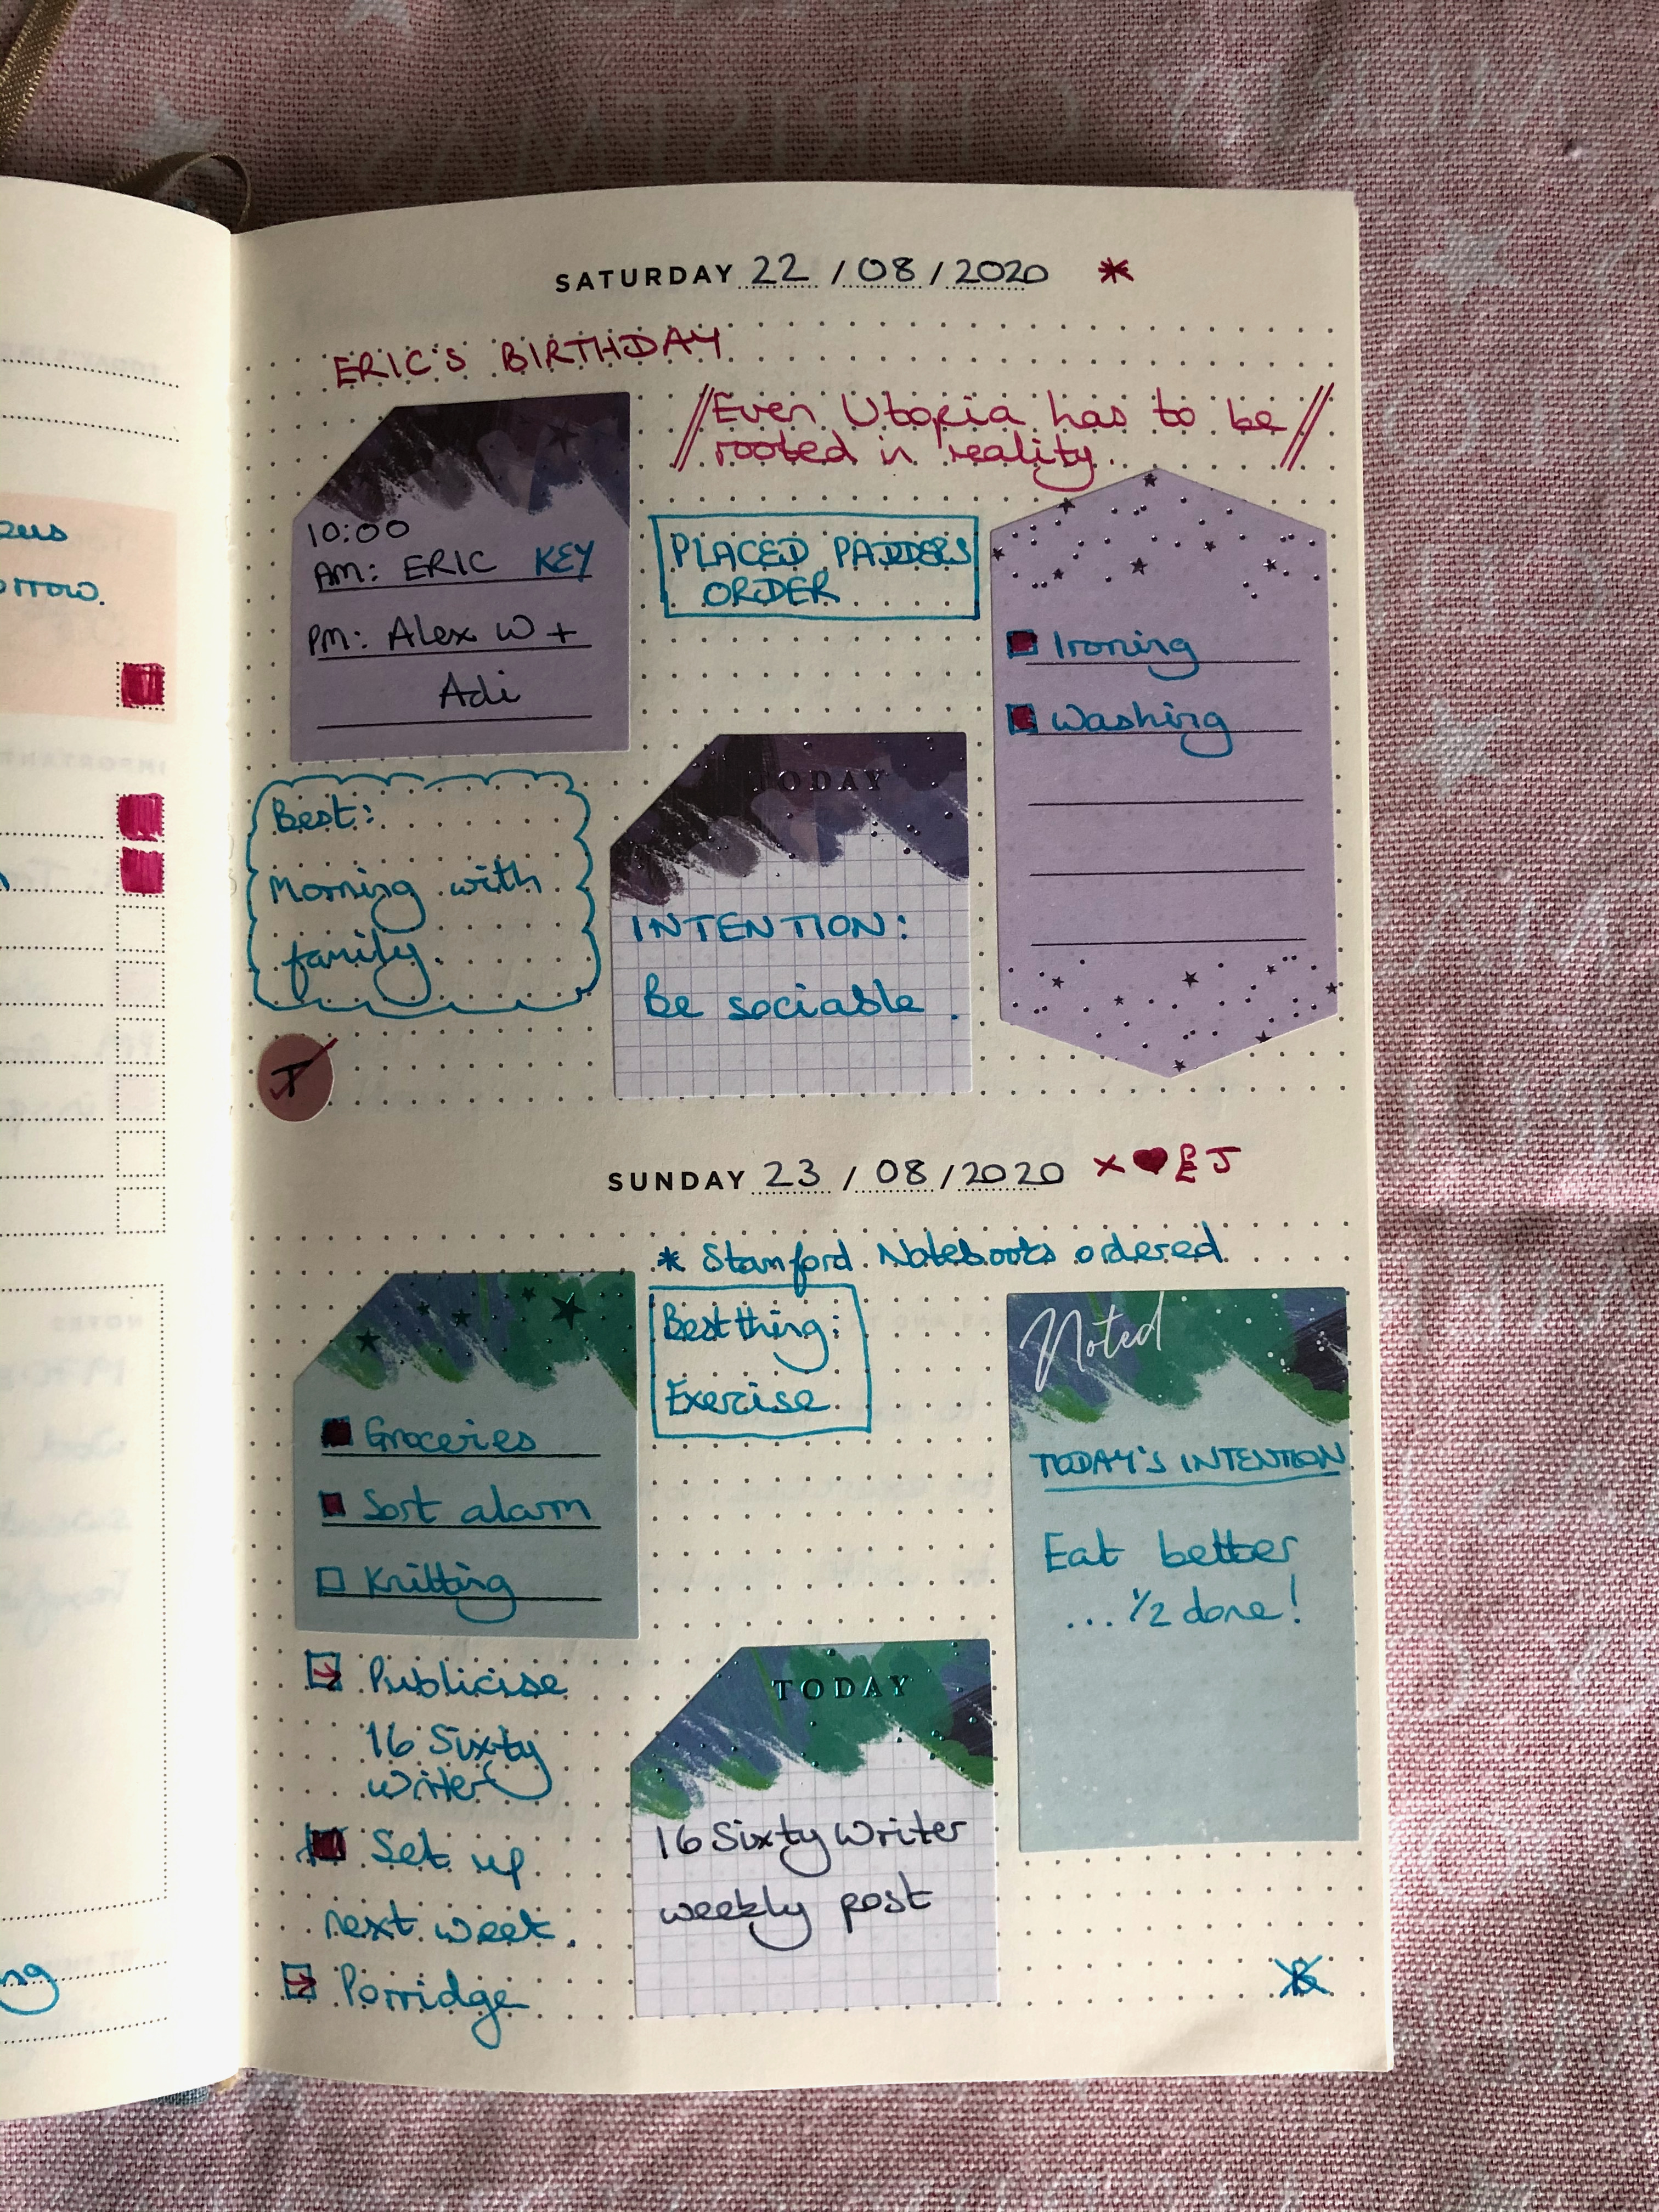 SATURDAY 22 / 08 / 2020 *
ERIC'S BIRTHDAY
// Even Utopia has to be //
rooted in reality
10:00
AM: ERIC KEY
PM: Alex W +
Adi
PLACED
ORDER
Ironing
Washing
Best:
Morning with
family.
TODAY
INTENTION:
Be sociable.
T
SUNDAY 23 / 08 / 2020 x ♥ £ J
* Stamford Notebooks ordered
Best thing:
Exercise
Groceries
Sort alarm
Knitting
Noted
TODAY'S INTENTION
Eat better
... 1/2 done!
Publicise
16 Sixty
Writer
Set up
next week.
Porridge
TODAY
16 Sixty Writer
weekly post
orrow.
NOTES